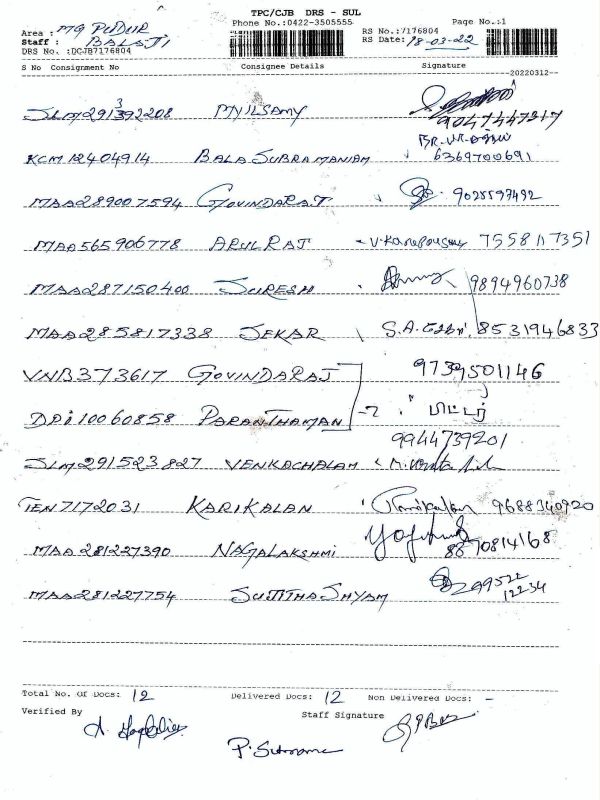 TPC/CJB DRS - SUL
Phone No.:0422-3505555 Page No.:1
Area : MG PUDUR RS No.:7176804
Staff : BALAJI RS Date: 18-03-22
DRS No. :DCJB7176804
S No Consignment No Consignee Details Signature
--20220312--
SLM291392208 MYILSAMY 9047447217
KCM12404914 BALASUBRAMANIAM 6369700691
MAA289007594 GOVINDARAJ 9025597492
MAA565906778 ARULRAJ 7558117351
MAA287150400 SURESH 9894960738
MAA285817338 SEKAR S.A. 8531946833
VNB373617 GOVINDARAJ 9739501146
DPI10060858 PARANTHAMAN
9944739201
SLM291523827 VENKACHALAM
TEN7172031 KARIKALAN 9688340920
MAA281227390 NAGALAKSHMI 8870814168
MAA281227754 SUJITHA SHYAM 
Total No. Of Docs: 12 Delivered Docs: 12 Non Delivered Docs: -
Verified By Staff Signature